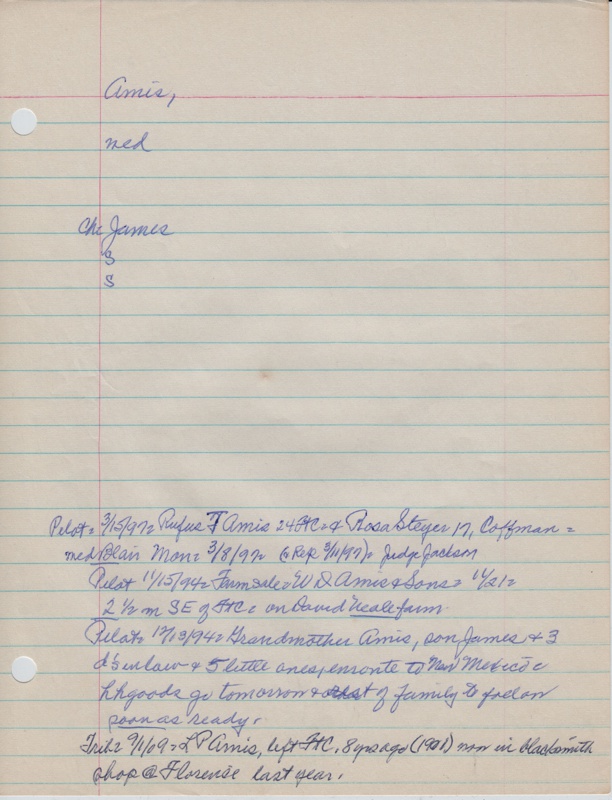 Amis,
med
Ch: James
S
S
Pilot = 3/15/97 = Rufus F Amis 24 HC + & Rosa Steyer 17, Coffman =
med Blair Mon = 3/8/97 = (@ Rep 3/11/97) = Judge Jackson
Pilot 11/15/94 = Farm sale = W D Amis & Sons = 11/21 =
2 1/2 m SE of HC = on David Neale farm.
Pilot = 12/13/94 = Grandmother Amis, son James & 3
d's in law & 5 little ones, enroute to New Mexico =
hhgoods go tomorrow & rest of family to follow
soon as ready.
Trib = 9/11/09 = L P Amis, left HC, 8 yrs ago (1901) now in blacksmith
shop @ Florense last year.